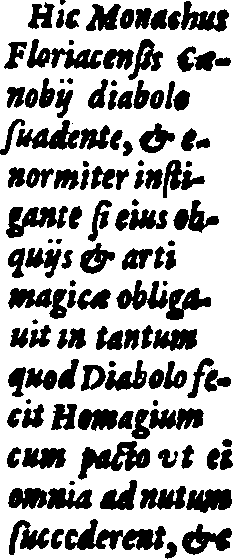 Hic Monachus
Floriacenſis Cæ-
nobij diabolo
ſuadente, & e-
normiter inſti-
gante ſi eius ob-
quijs & arti
magicæ obliga-
uit in tantum
quod Diabolo fe-
cit Homagium
cum pacto vt ei
omnia ad nutum
ſuccederent, &c